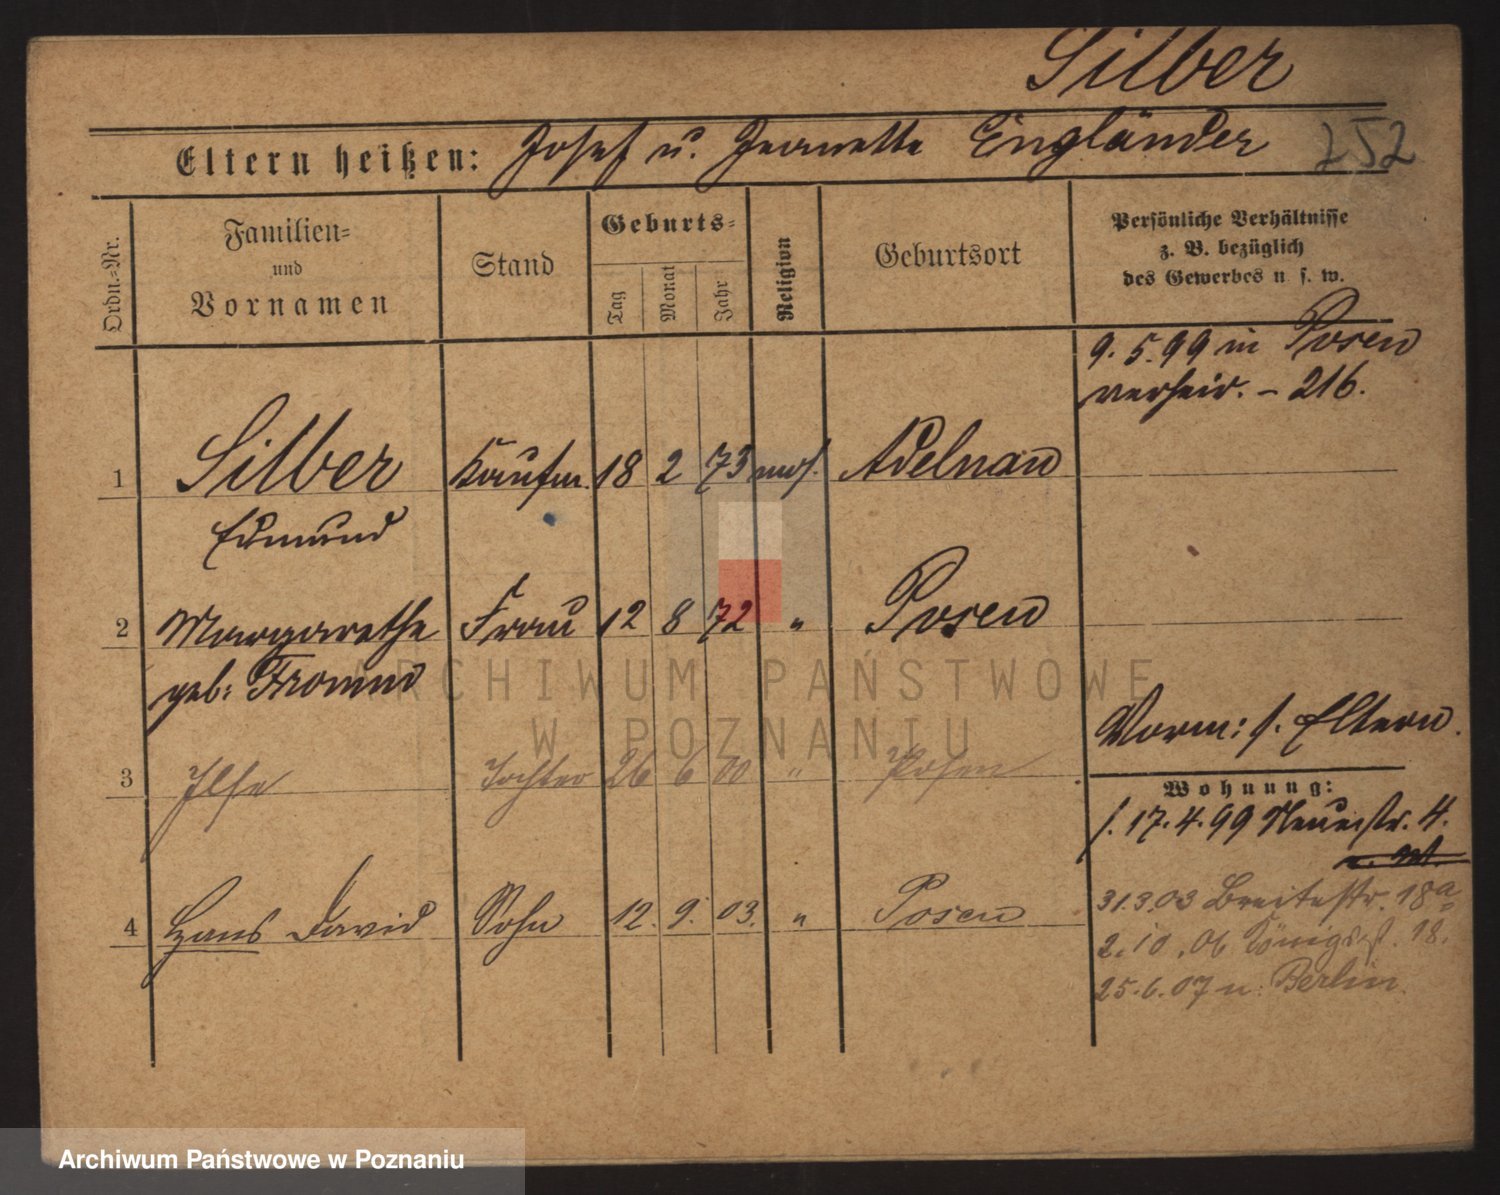 Silber
Eltern heißen: Josef u. Jeanette Engländer 252
Ordn.-Nr.
Familien-
und
Vornamen
Stand
Geburts-
Tag
Monat
Jahr
Religion
Geburtsort
Persönliche Verhältnisse
z. B. bezüglich
des Gewerbes u s. w.
9.5.99 in Posen
verheir. – 216.
1 Silber Kaufm. 18 2 73 mos. Adelnau
Edmund
2 Margarethe Frau 12 8 72 " Posen
geb: Fromm
Vorm: s. Eltern.
3 Ilse Tochter 26 6 00 " Posen
Wohnung:
s. 17.4.99 Neuestr. 4.
4 Hans David Sohn 12. 9. 03. " Posen
31.3.03 Breitestr. 18a
2.10.06 Königsst. 18.
25.6.07 n. Berlin.
ARCHIWUM PAŃSTWOWE
W POZNANIU
Archiwum Państwowe w Poznaniu